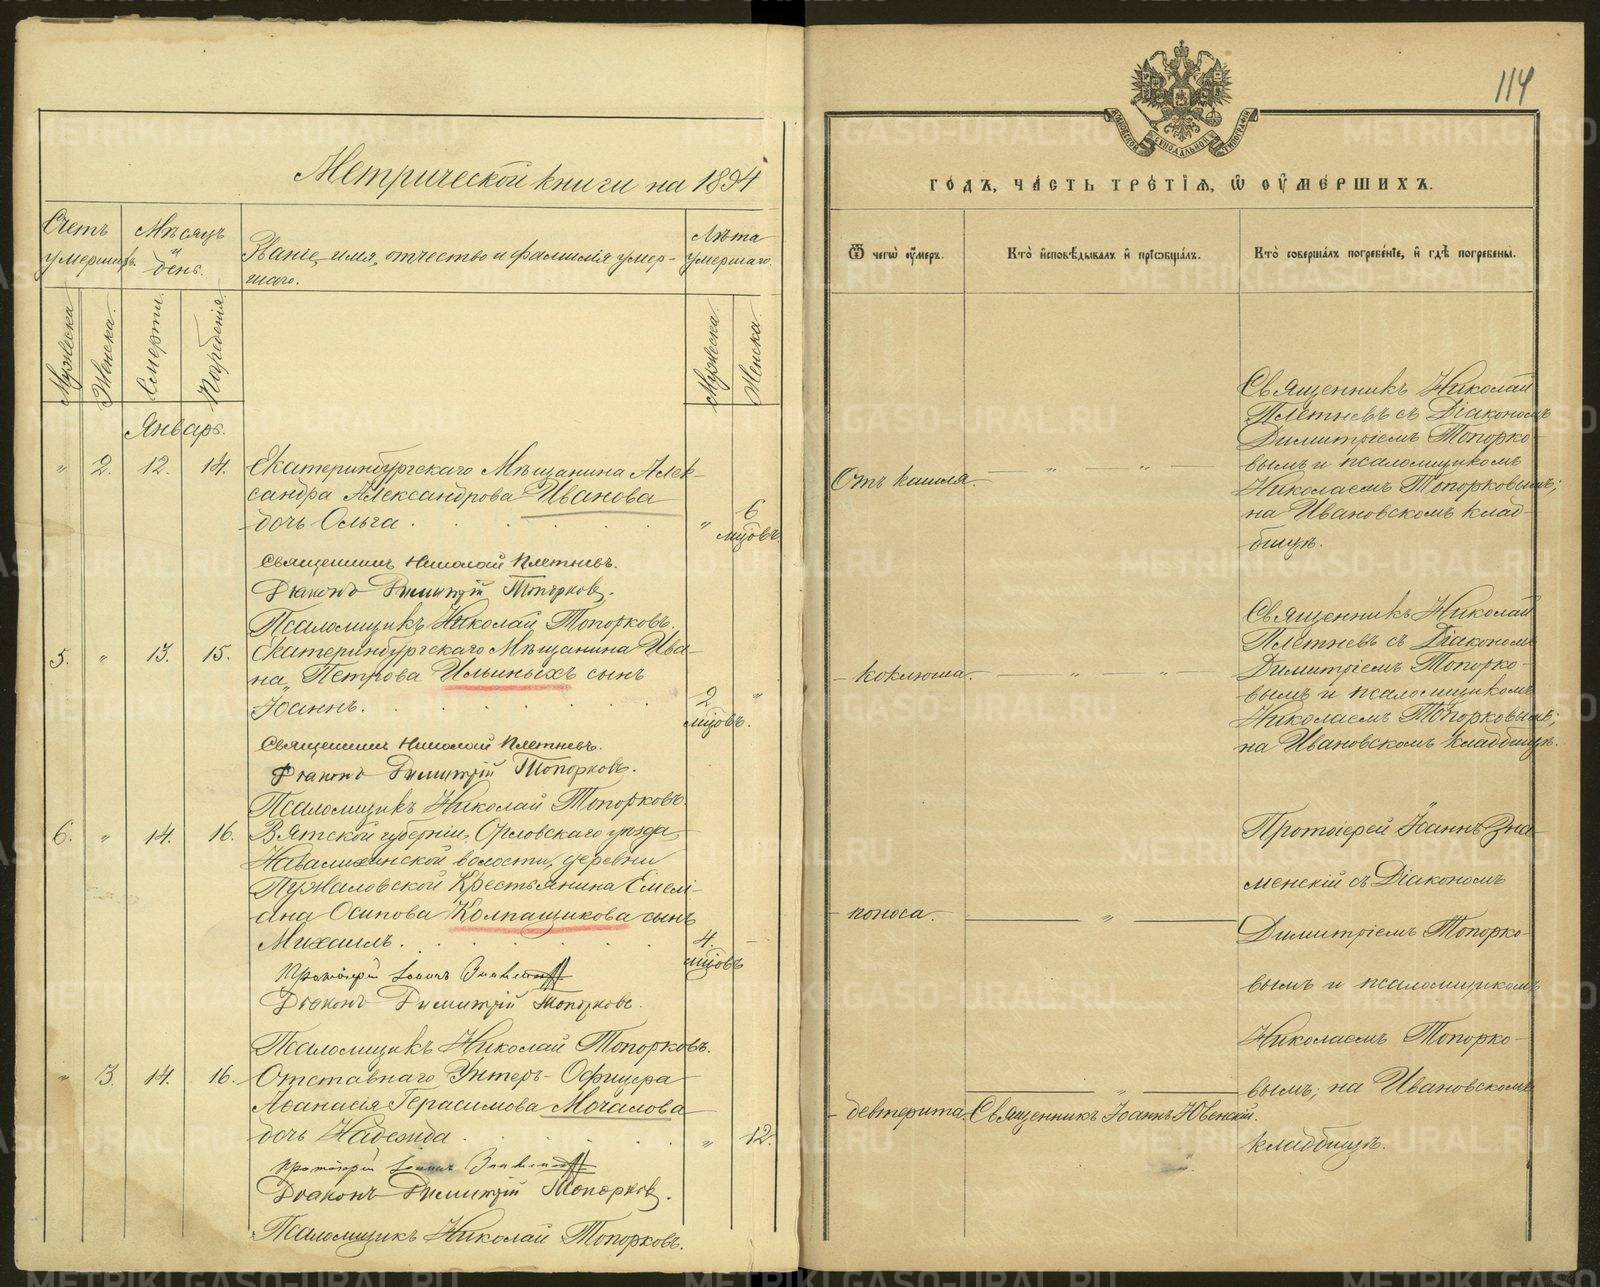 114
Метрической книги на 1894
ГОДЪ, ЧАСТЬ ТРЕТІЯ, Ѿ ОУМЕРШИХЪ.
Счетъ умершихъ.
Мужеска
Женска.
Мѣсяцъ и день.
Смерти.
Погребенія.
Званіе, имя, отчество и фамилія умер-
шаго.
Лѣта умершаго.
Мужеска.
Женска.
Ѿ чегѡ оумеръ.
Кто исповѣдывалъ и пріѡбщалъ.
Кто совершалъ погребеніе, и гдѣ погребены.
Январь.
" 2. 12. 14. Екатеринбургскаго Мѣщанина Алек-
сандра Александрова Иванова
дочь Ольга.
" 6 мцовъ.
Священникъ Николай Плетневъ.
Діаконъ Димитрій Топорковъ.
Псаломщикъ Николай Топорковъ.
Отъ кашля.
Священникъ Николай
Плетневъ съ Діакономъ
Димитріемъ Топорко-
вымъ и псаломщикомъ
Николаемъ Топорковымъ;
на Ивановскомъ клад-
бищѣ.
5. " 13. 15. Екатеринбургскаго Мѣщанина Ива-
на Петрова Ильиныхъ сынъ
Іоаннъ.
2 мцовъ. "
Священникъ Николай Плетневъ.
Діаконъ Димитрій Топорковъ.
Псаломщикъ Николай Топорковъ.
- коклюша.
Священникъ Николай
Плетневъ съ Діакономъ
Димитріемъ Топорко-
вымъ и псаломщикомъ
Николаемъ Топорковымъ;
на Ивановскомъ кладбищѣ.
6. " 14. 16. Вятской губерніи, Орловскаго уѣзда,
волости, деревни
Пужаловской Крестьянина Емелі-
ана Осипова Колпащикова сынъ
Михаилъ.
4. мцовъ
Протоіерей Іоаннъ Знаменскій
Діаконъ Димитрій Топорковъ.
Псаломщикъ Николай Топорковъ.
- поноса.
Протоіерей Іоаннъ Зна-
менскій съ Діакономъ
Димитріемъ Топорко-
вымъ и псаломщикомъ
Николаемъ Топорко-
вымъ; на Ивановскомъ
кладбищѣ.
" 3. 14. 16. Отставнаго Унтеръ-Офицера
Аѳанасія Герасимова Мочалова
дочь Надежда.
" 12.
Протоіерей Іоаннъ Знаменскій
Діаконъ Димитрій Топорковъ.
Псаломщикъ Николай Топорковъ.
- девтерита.
Священникъ Іоаннъ Ювенскій.
METRIKI.GASO-URAL.RU